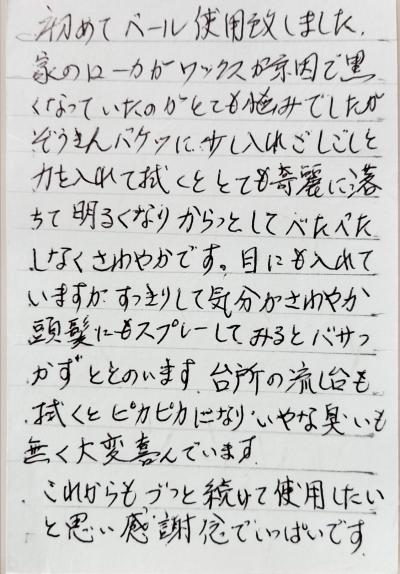 初めてベール使用致しました.
家のローカがワックスが原因で黒
くなっていたのがとても悩みでしたが
ぞうきんバケツに少し入れごしごしと
力を入れて拭くととても奇麗に落
ちて明るくなりからっとしてべたべた
しなくさわやかです。目にも入れて
いますがすっきりして気分がさわやか
頭髪にもスプレーしてみるとバサつ
かずととのいます.台所の流し台も
拭くとピカピカになりいやな臭いも
無く大変喜んでいます.
これからもづっと続けて使用したい
と思い感謝念でいっぱいです